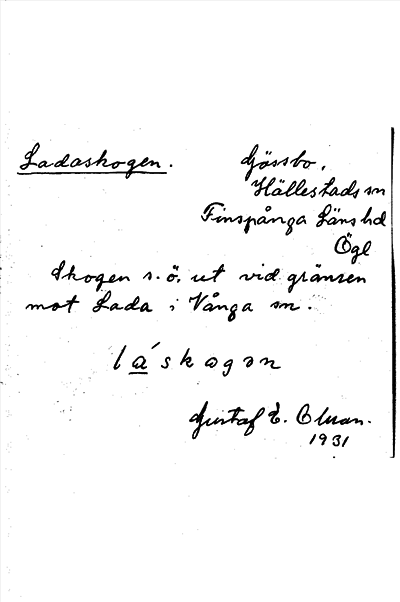 Ladaskogen.
Gössbo.
Hällestads sn
Finspånga Läns hd
Ögl
Skogen s.ö. ut vid gränsen
mot Lada i Vånga sn.
láskogən
Gustaf E. Olman.
1931